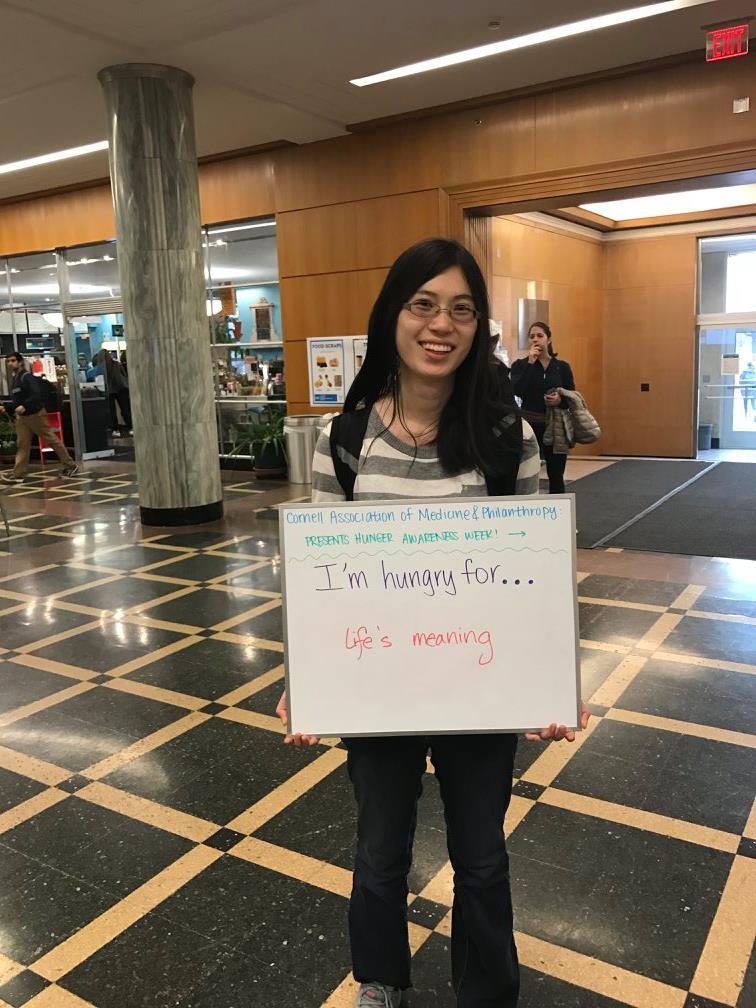 EXIT
FOOD SCRAPS
Cornell Association of Medicine & Philanthropy:
PRESENTS HUNGER AWARENESS WEEK! →
I'm hungry for...
life's meaning